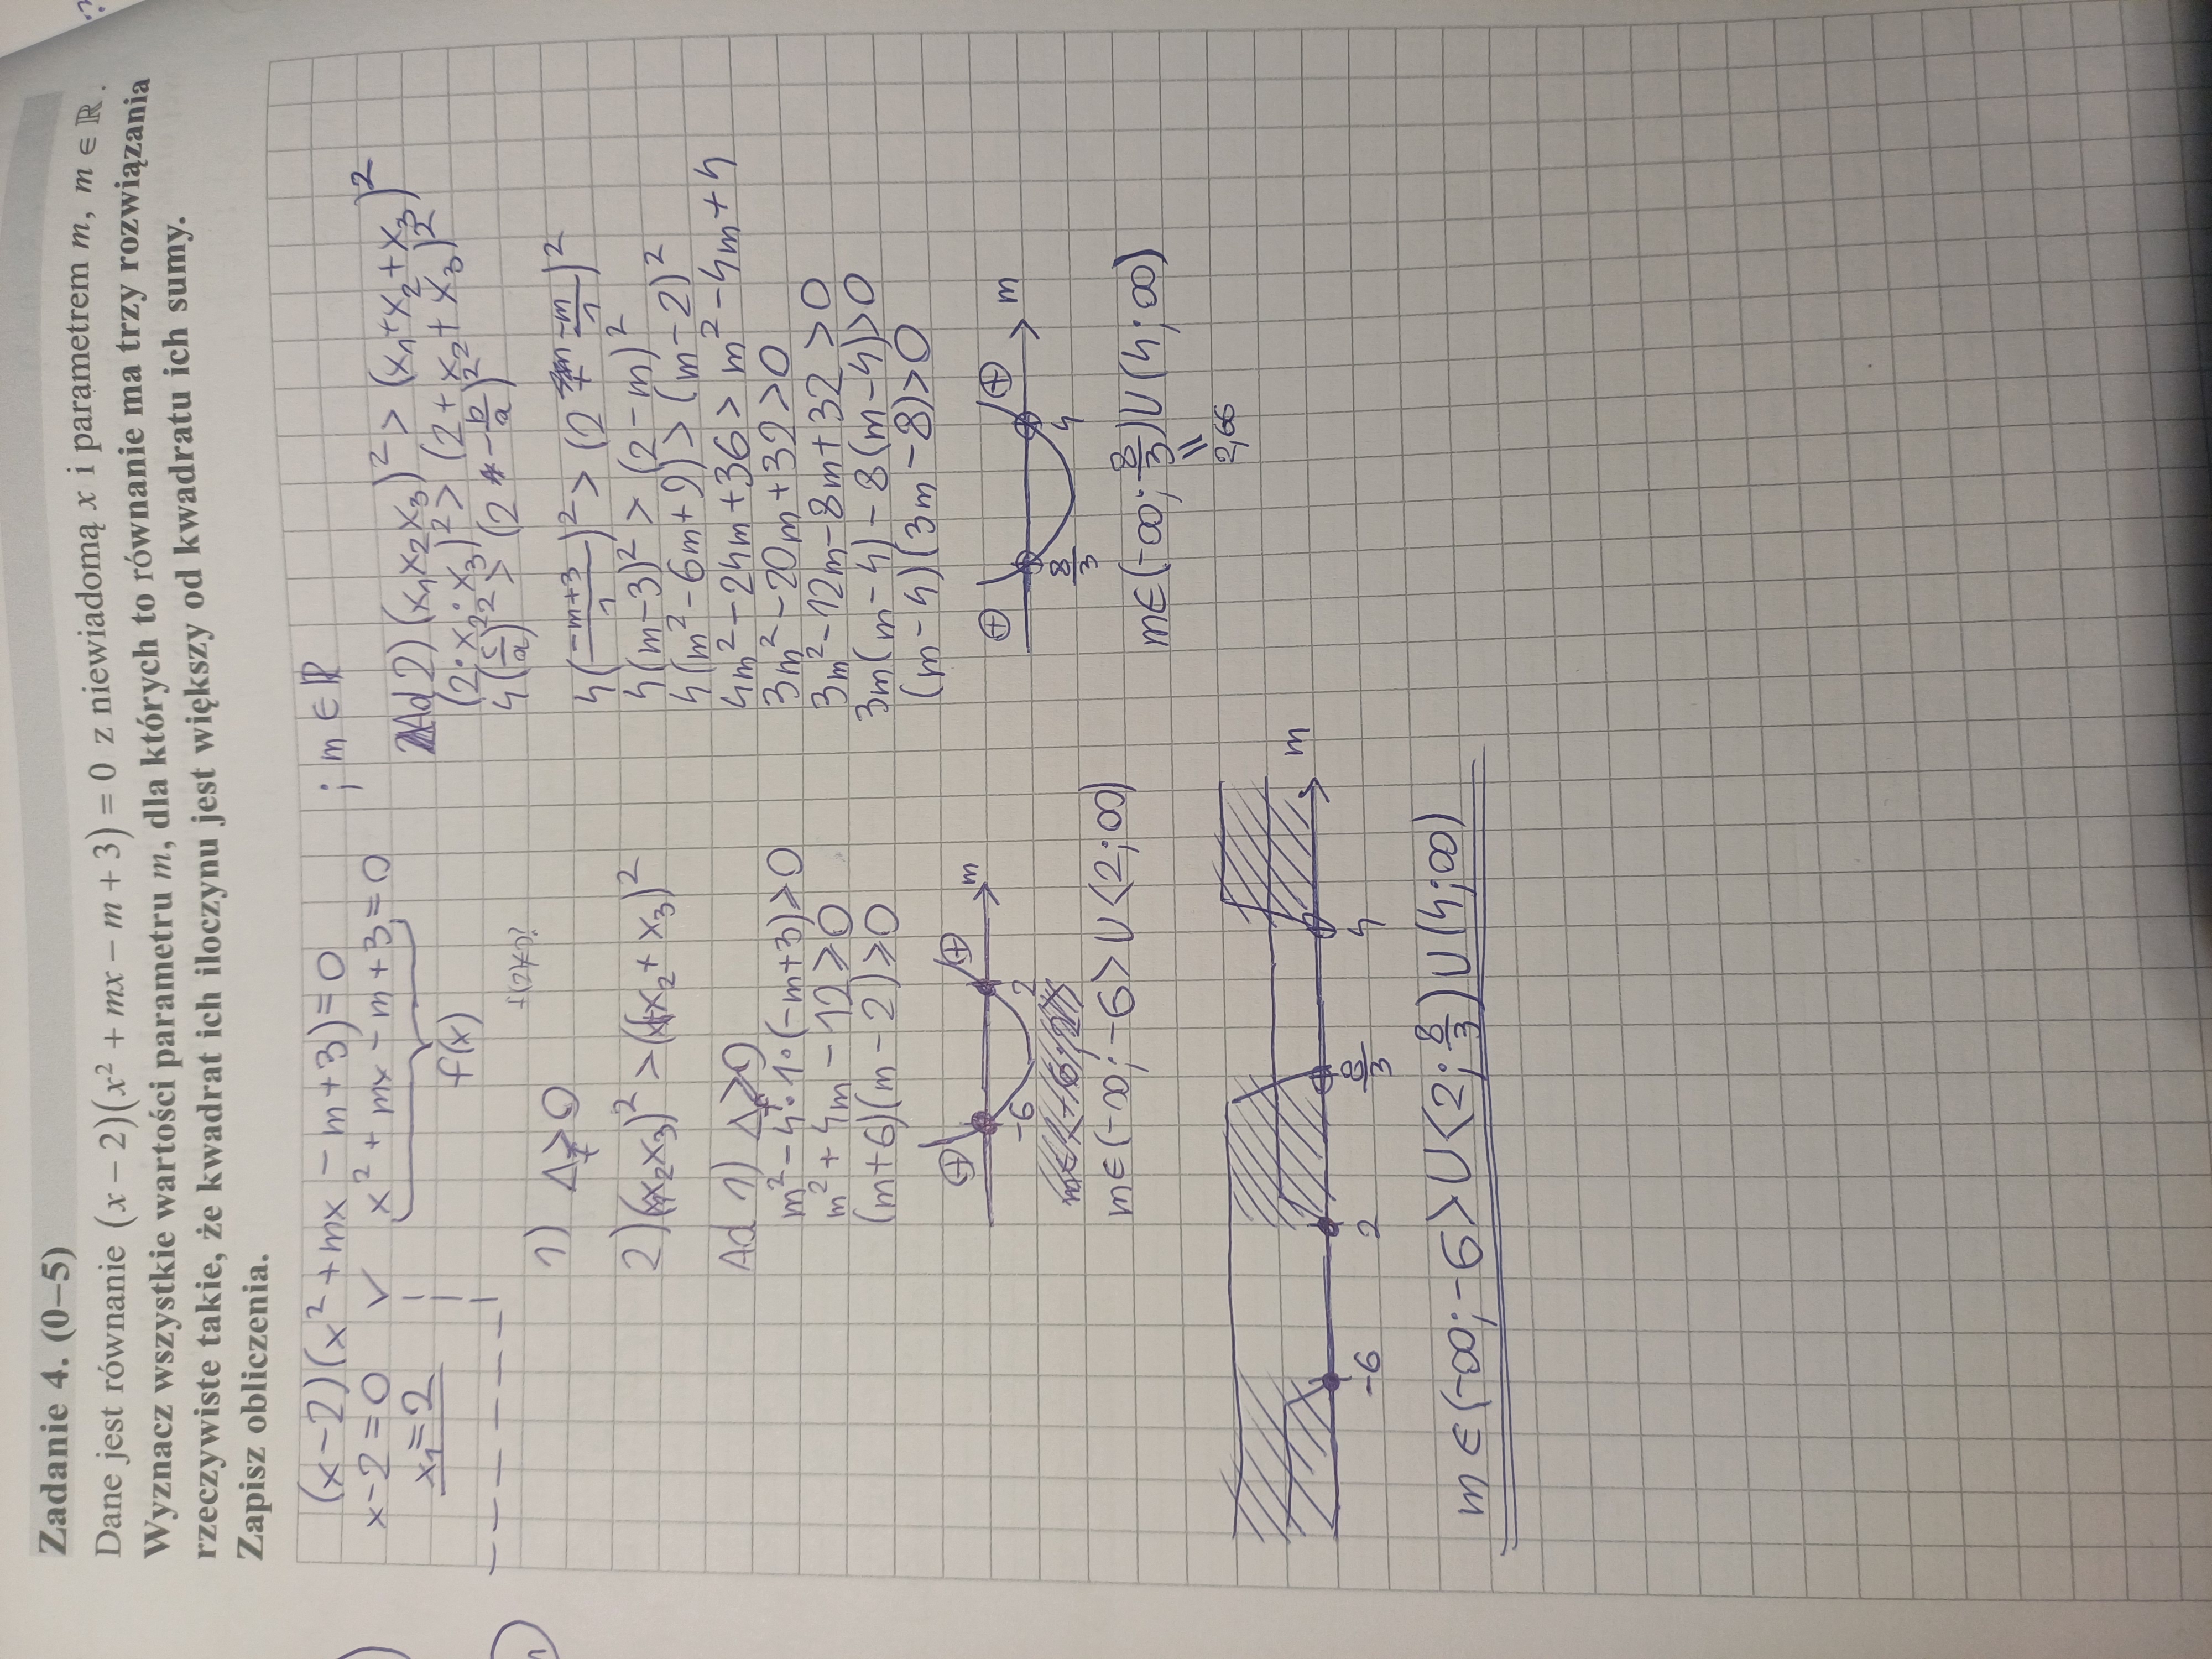 Zadanie 4. (0–5)
Dane jest równanie (x − 2)(x² + mx − m + 3) = 0 z niewiadomą x i parametrem m, m ∈ ℝ.
Wyznacz wszystkie wartości parametru m, dla których to równanie ma trzy rozwiązania
rzeczywiste takie, że kwadrat ich iloczynu jest większy od kwadratu ich sumy.
Zapisz obliczenia.
(x−2)(x²+mx−m+3)=0 ; m∈ℝ
x−2=0 ∨ x²+mx−m+3=0
x₁=2
f(x)
1) Δ≥0
2) (x₂x₃)² > (x₂+x₃)²
Ad 1) Δ≥0
m²−4·1·(−m+3)≥0
m²+4m−12≥0
(m+6)(m−2)≥0
⊕ ⊕ m
−6 2
m∈(−∞;−6>∪<2;∞)
Ad 2) (x₁x₂x₃)² > (x₁+x₂+x₃)²
(2·x₂·x₃)² > (2+x₂+x₃)²
4(c/a)² > (2 + −b/a)²
4(−m+3/1)² > (2 + −m/1)²
4(m−3)² > (2−m)²
4(m²−6m+9) > (m−2)²
4m²−24m+36 > m²−4m+4
3m²−20m+32>0
3m²−12m−8m+32>0
3m(m−4)−8(m−4)>0
(m−4)(3m−8)>0
⊕ ⊕ m
8/3 4
m∈(−∞;8/3)∪(4;∞)
=
2,66
m
−6 2 8/3 4
m∈(−∞;−6>∪<2;8/3)∪(4;∞)